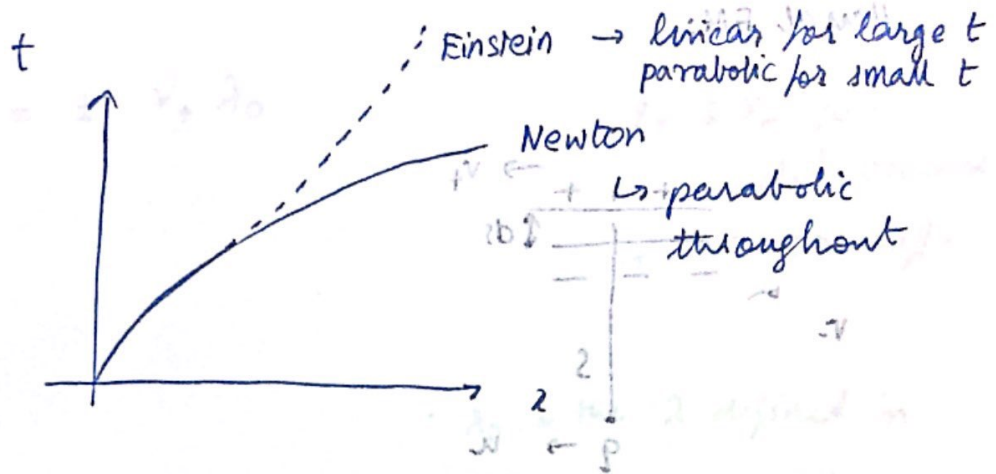 t
Einstein → linear for large t
parabolic for small t
Newton
↳ parabolic
throughout
x